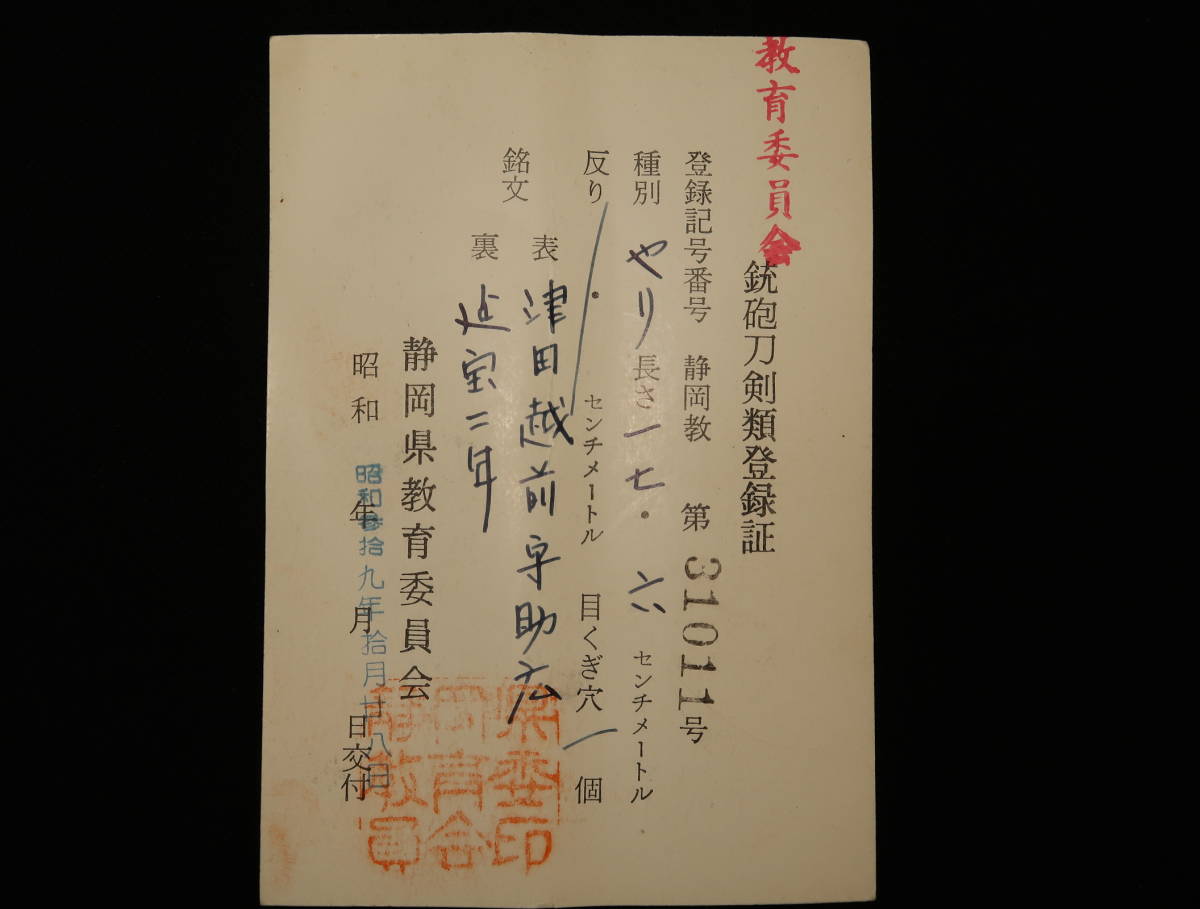 教育委員会
銃砲刀剣類登録証
登録記号番号 静岡教 第31011号
種別 やり 長さ 一七・六 センチメートル
反り ・ センチメートル 目くぎ穴 一 個
銘文
表 津田越前守助広
裏 延宝二年
静岡県教育委員会
昭和 年 月 日交付
昭和参拾九年拾月廿八日
静岡県教育委員会印